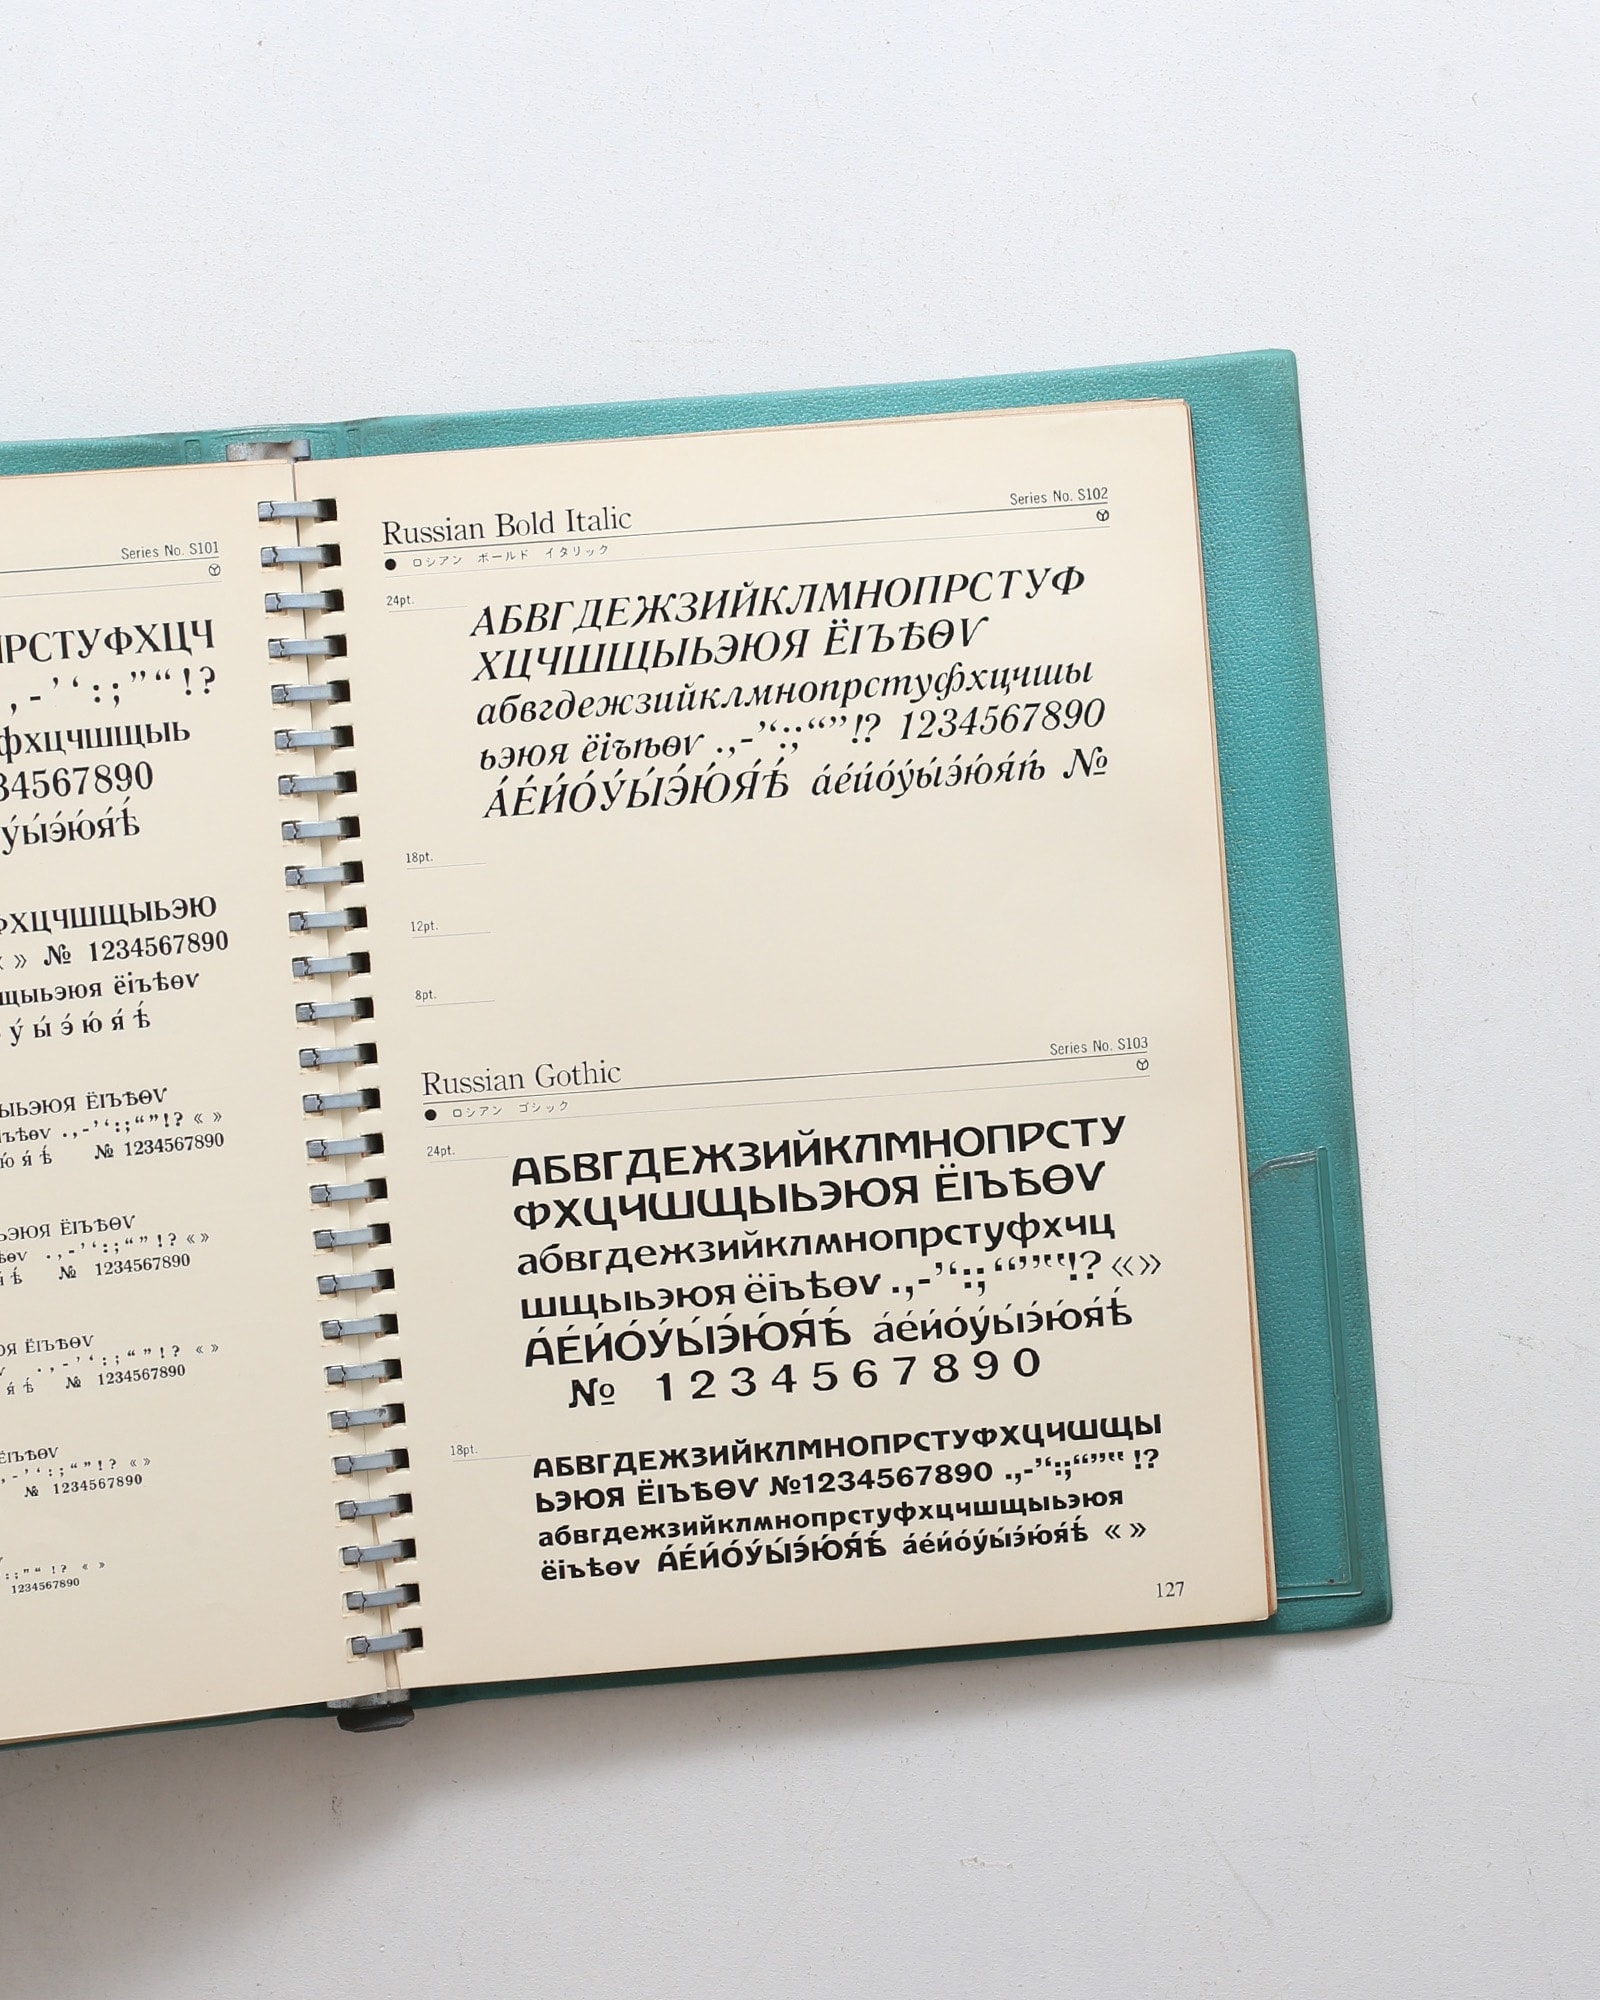 Series No. S101
РСТУФХЦЧ
,-’‘:;”“!?
фхцчшщыь
34567890
у́ы́э́ю́я́ѣ́
ФХЦЧШЩЫЬЭЮ
» № 1234567890
щыьэюя ёіъѣѳѵ
у́ ы́ э́ ю́ я́ ѣ́
ЫЬЭЮЯ ЁІЪѢѲѴ
ъѣѳѵ .,-’‘:;“”!? « »
ю́ я́ ѣ́ № 1234567890
ЬЭЮЯ ЁІЪѢѲѴ
ѣѳѵ .,-’‘:;“”!? « »
ѣ́ № 1234567890
ОЯ ЁІЪѢѲѴ
.,-’‘:;“”!? « »
я́ ѣ́ № 1234567890
ЁІЪѢѲѴ
,-’‘:;“”!? « »
№ 1234567890
:;”“ !? « »
1234567890
Russian Bold Italic Series No. S102
● ロシアン ボールド イタリック
24pt.
АБВГДЕЖЗИЙКЛМНОПРСТУФ
ХЦЧШЩЫЬЭЮЯ ЁІЪѢѲѴ
абвгдежзийклмнопрстуфхцчшы
ьэюя ёіъѣѳѵ .,-’‘:;“”!? 1234567890
А́Е́И́О́У́Ы́Э́Ю́Я́Ѣ́ а́е́и́о́у́ы́э́ю́я́ѣ́ №
18pt.
12pt.
8pt.
Russian Gothic Series No. S103
● ロシアン ゴシック
24pt.
АБВГДЕЖЗИЙКЛМНОПРСТУ
ФХЦЧШЩЫЬЭЮЯ ЁІЪѢѲѴ
абвгдежзийклмнопрстуфхчц
шщыьэюя ёіъѣѳѵ .,-’‘:;“”‟!? «»
А́Е́И́О́У́Ы́Э́Ю́Я́Ѣ́ а́е́и́о́у́ы́э́ю́я́ѣ́
№ 1 2 3 4 5 6 7 8 9 0
18pt.
АБВГДЕЖЗИЙКЛМНОПРСТУФХЦЧШЩЫ
ЬЭЮЯ ЁІЪѢѲѴ №1234567890 .,-’‘:;“”‟ !?
абвгдежзийклмнопрстуфхцчшщыьэюя
ёіъѣѳѵ А́Е́И́О́У́Ы́Э́Ю́Я́Ѣ́ а́е́и́о́у́ы́э́ю́я́ѣ́ « »
127